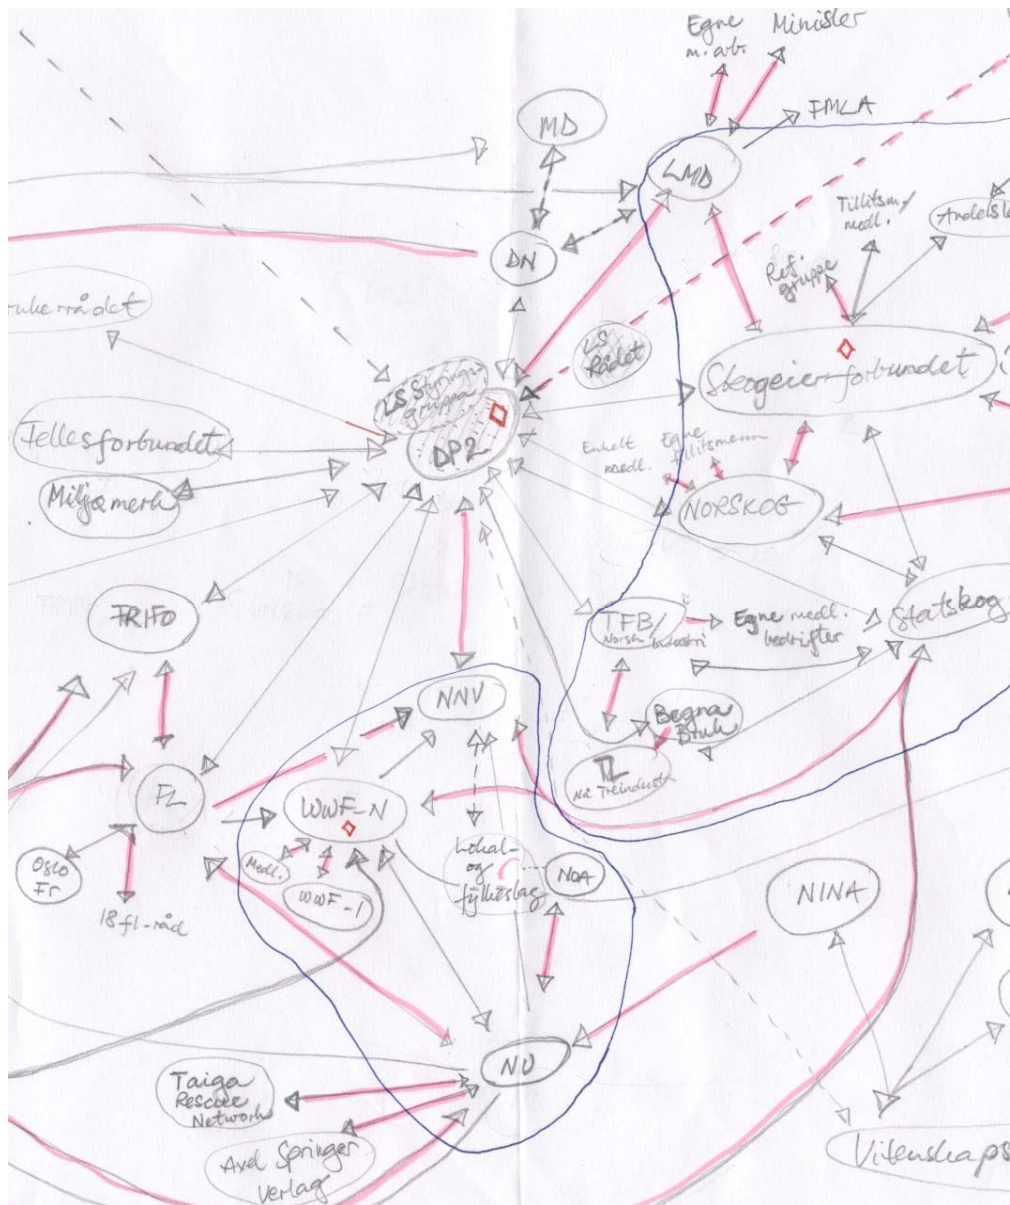 Egne
m.arb.
Minister
FMLA
MD
LMD
Tillitsm./
medl.
DN
Ref.
gruppe
LS
Rådet
Skogeierforbundet
LS Styrings
gruppa
DP2
Fellesforbundet
Miljømerk
Enkelt
medl.
Egne
tillitsmenn
NORSKOG
FRIFO
TFB/
Norsk Industri
Egne medl.
bedrifter
Statskog
NNV
Begna
Bruk
TL
FL
WWF-N
Medl.
WWF-I
Lokal-
og
fylkeslag
NOA
NINA
Oslo
Fr
18 fl-råd
NU
Taiga
Rescue
Network
Axel Springer
Verlag
Vitenskaps